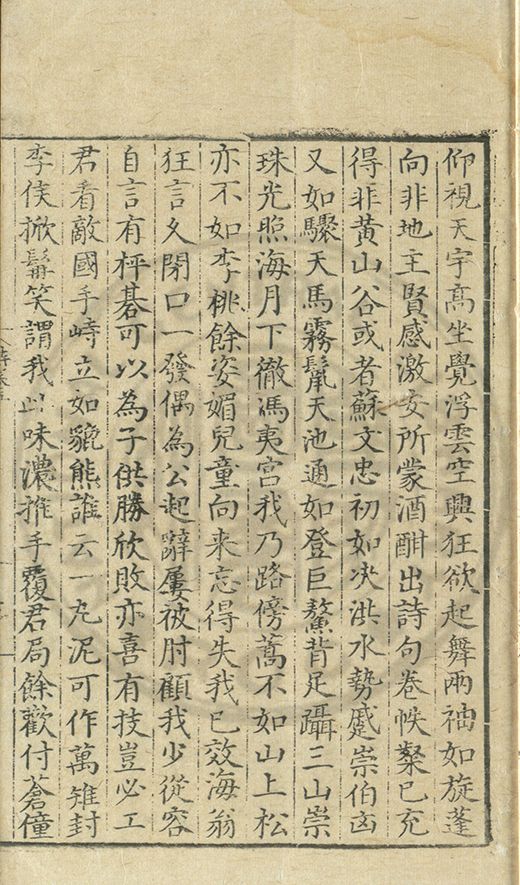 仰視天宇高坐覺浮雲空興狂欲起舞兩袖如旋蓬
向非地主賢感激安所蒙酒酣出詩句卷帙粲已充
得非黃山谷或者蘇文忠初如决洪水勢蹙崇伯凶
又如驟天馬霧鬛天池通如登巨鰲背足躡三山崇
珠光照海月下徹馮夷宮我乃路傍蒿不如山上松
亦不如李桃餘姿媚兒童向来忘得失我已效海翁
狂言久閉口一發偶為公起辭屢被肘顧我少從容
自言有枰棊可以為子供勝欣敗亦喜有技豈必工
君看敵國手峙立如貔熊誰云一丸泥可作萬雉封
李侯掀髯笑謂我此味濃推手覆君局餘歡付蒼僮